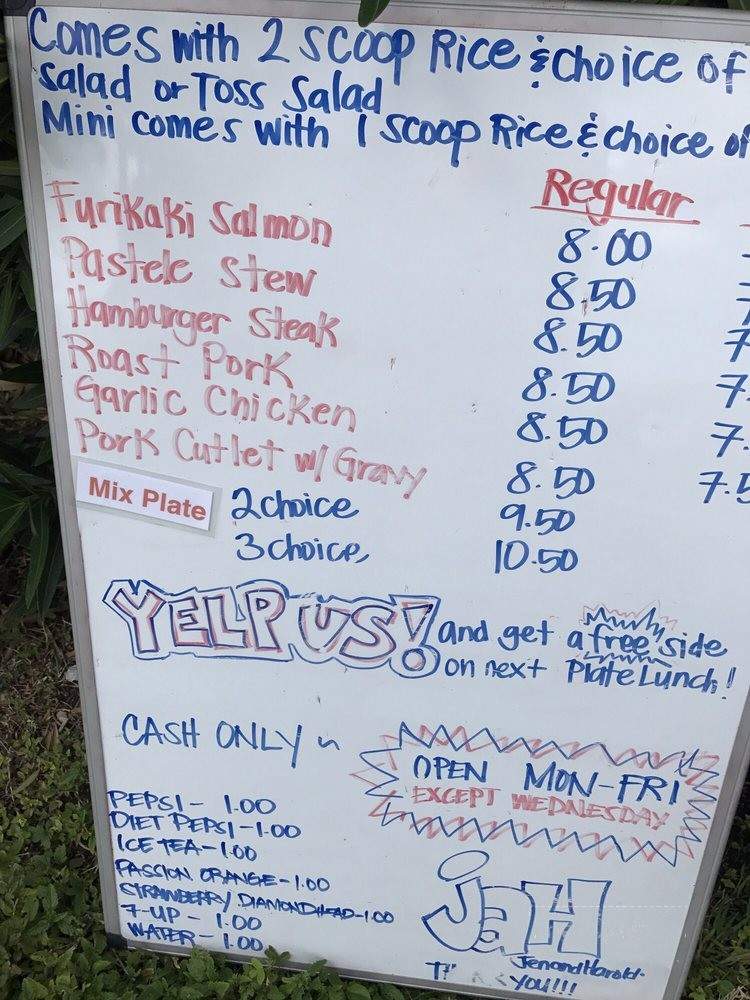 Comes with 2 scoop Rice & choice of
Salad or Toss Salad
Mini comes with 1 scoop Rice & choice of
Regular
Furikaki Salmon 8.00
Pastele Stew 8.50
Hamburger Steak 8.50 7
Roast Pork 8.50 7.
Garlic Chicken 8.50 7.
Pork Cutlet w/ Gravy 8.50 7.5
Mix Plate 2 choice 9.50
3 choice 10.50
YELP US! and get a free side
on next Plate Lunch!
CASH ONLY ~
OPEN MON-FRI
EXCEPT WEDNESDAY
PEPSI - 1.00
DIET PEPSI - 1.00
ICE TEA - 1.00
PASSION ORANGE - 1.00
STRAWBERRY DIAMONDHEAD - 1.00
7-UP - 1.00
WATER - 1.00
JaH
Jen and Harold.
YOU!!!